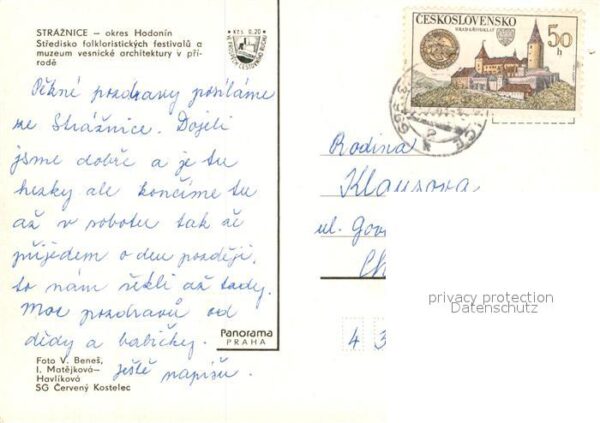 STRÁŽNICE – okres Hodonín
Středisko folkloristických festivalů a
muzeum vesnické architektury v pří-
rodě
Kčs 0,20
ČESKOSLOVENSKO
HRAD KŘIVOKLÁT
50 h
Pěkné pozdravy posíláme
ze Strážnice. Dojeli
jsme dobře a je tu
hezky ale končíme tu
až v sobotu tak ač
přijedem o den později,
to nám řekli až tady.
Moc pozdravů od
dědy a babičky.
ještě napíšu.
Rodina
Klausova
ul.
Panorama
PRAHA
Foto V. Beneš,
I. Matějková–
Havlíková
SG Červený Kostelec
4 3
privacy protection
Datenschutz